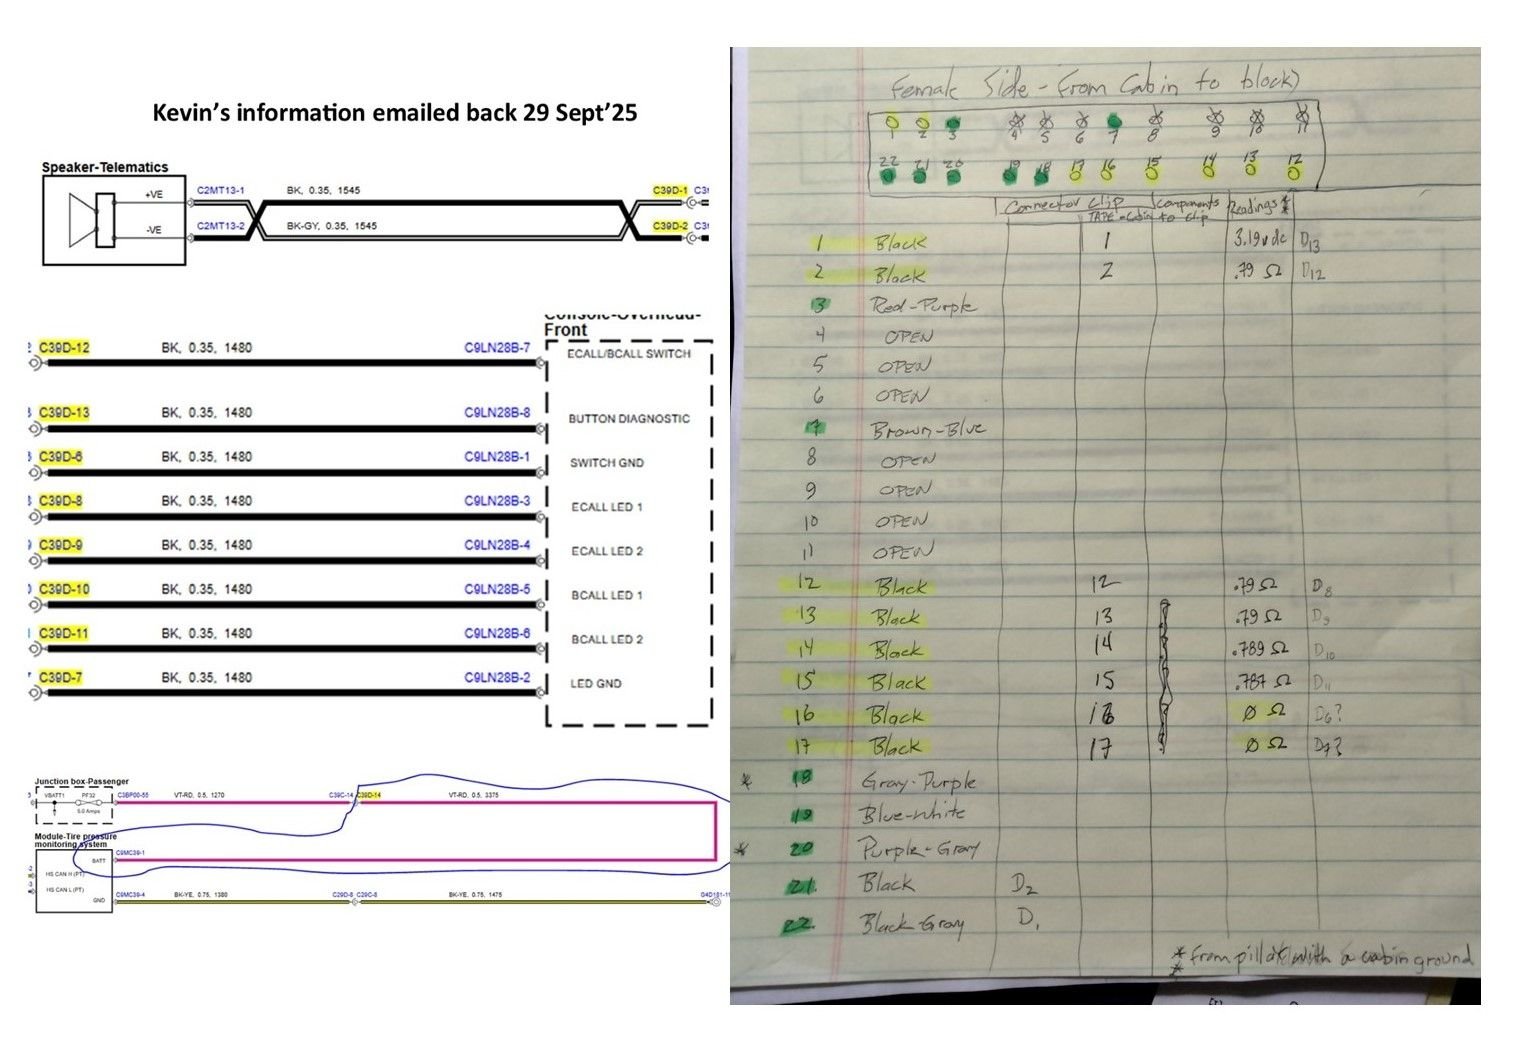 Kevin's information emailed back 29 Sept'25
Speaker-Telematics
+VE
-VE
C2MT13-1
BK, 0.35, 1545
C39D-1
C2MT13-2
BK-GY, 0.35, 1545
C39D-2
Console-Overhead-
Front
C39D-12 BK, 0.35, 1480 C9LN28B-7 ECALL/BCALL SWITCH
C39D-13 BK, 0.35, 1480 C9LN28B-8 BUTTON DIAGNOSTIC
C39D-6 BK, 0.35, 1480 C9LN28B-1 SWITCH GND
C39D-8 BK, 0.35, 1480 C9LN28B-3 ECALL LED 1
C39D-9 BK, 0.35, 1480 C9LN28B-4 ECALL LED 2
C39D-10 BK, 0.35, 1480 C9LN28B-5 BCALL LED 1
C39D-11 BK, 0.35, 1480 C9LN28B-6 BCALL LED 2
C39D-7 BK, 0.35, 1480 C9LN28B-2 LED GND
Junction box-Passenger
VBATT1 PF32
5.0 Amps
C3BP00-55 VT-RD, 0.5, 1270 C39C-14 C39D-14 VT-RD, 0.5, 3375
Module-Tire pressure
monitoring system
BATT C9MC39-1
HS CAN H (PT)
HS CAN L (PT)
GND C9MC39-4 BK-YE, 0.75, 1380 C29D-8 C29C-8 BK-YE, 0.75, 1475
Female Side - From Cabin to block)
1 2 3 4 5 6 7 8 9 10 11
22 21 20 19 18 17 16 15 14 13 12
Connector Clip Components Readings *
TAPE - Cabin to clip
1 Black 1 3.19vdc D13
2 Black 2 .79 Ω D12
3 Red-Purple
4 OPEN
5 OPEN
6 OPEN
7 Brown-Blue
8 OPEN
9 OPEN
10 OPEN
11 OPEN
12 Black 12 .79 Ω D8
13 Black 13 .79 Ω D9
14 Black 14 .789 Ω D10
15 Black 15 .787 Ω D11
16 Black 16 Ø Ω D6?
17 Black 17 Ø Ω D7?
* 18 Gray-Purple
19 Blue-White
* 20 Purple-Gray
21 Black D2
22 Black-Gray D1
* from pillar with a cabin ground